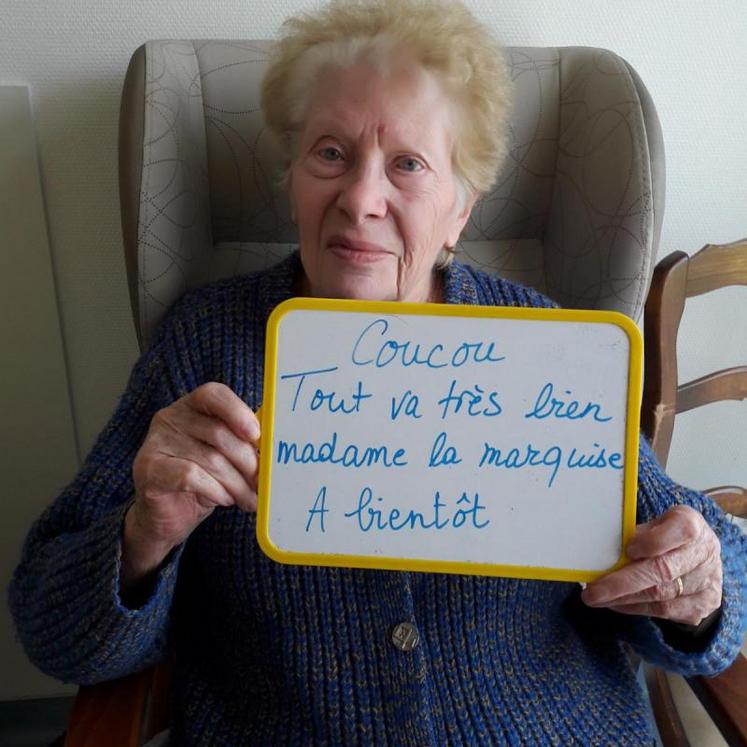 Coucou
Tout va très bien
madame la marquise
A bientôt